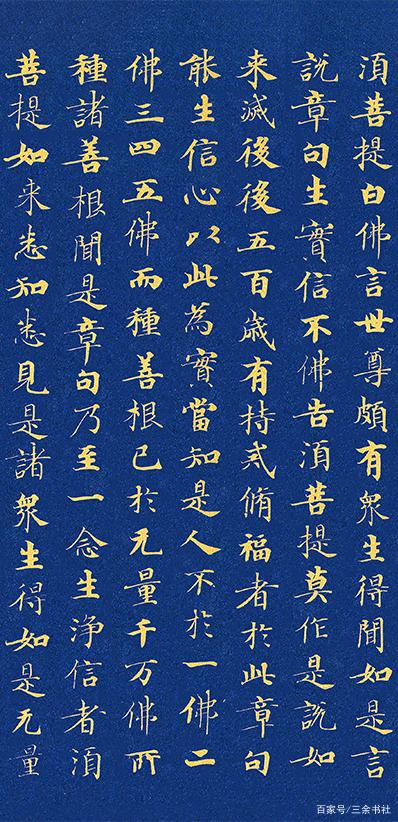 湏菩提白佛言世尊頗有衆生得聞如是言
説章句生實信不佛告湏菩提莫作是説如
来滅後後五百歲有持戒脩福者於此章句
能生信心以此為實當知是人不於一佛二
佛三四五佛而種善根已於无量千万佛所
種諸善根聞是章句乃至一念生浄信者湏
菩提如来悉知悉見是諸衆生得如是无量
百家号/三余书社